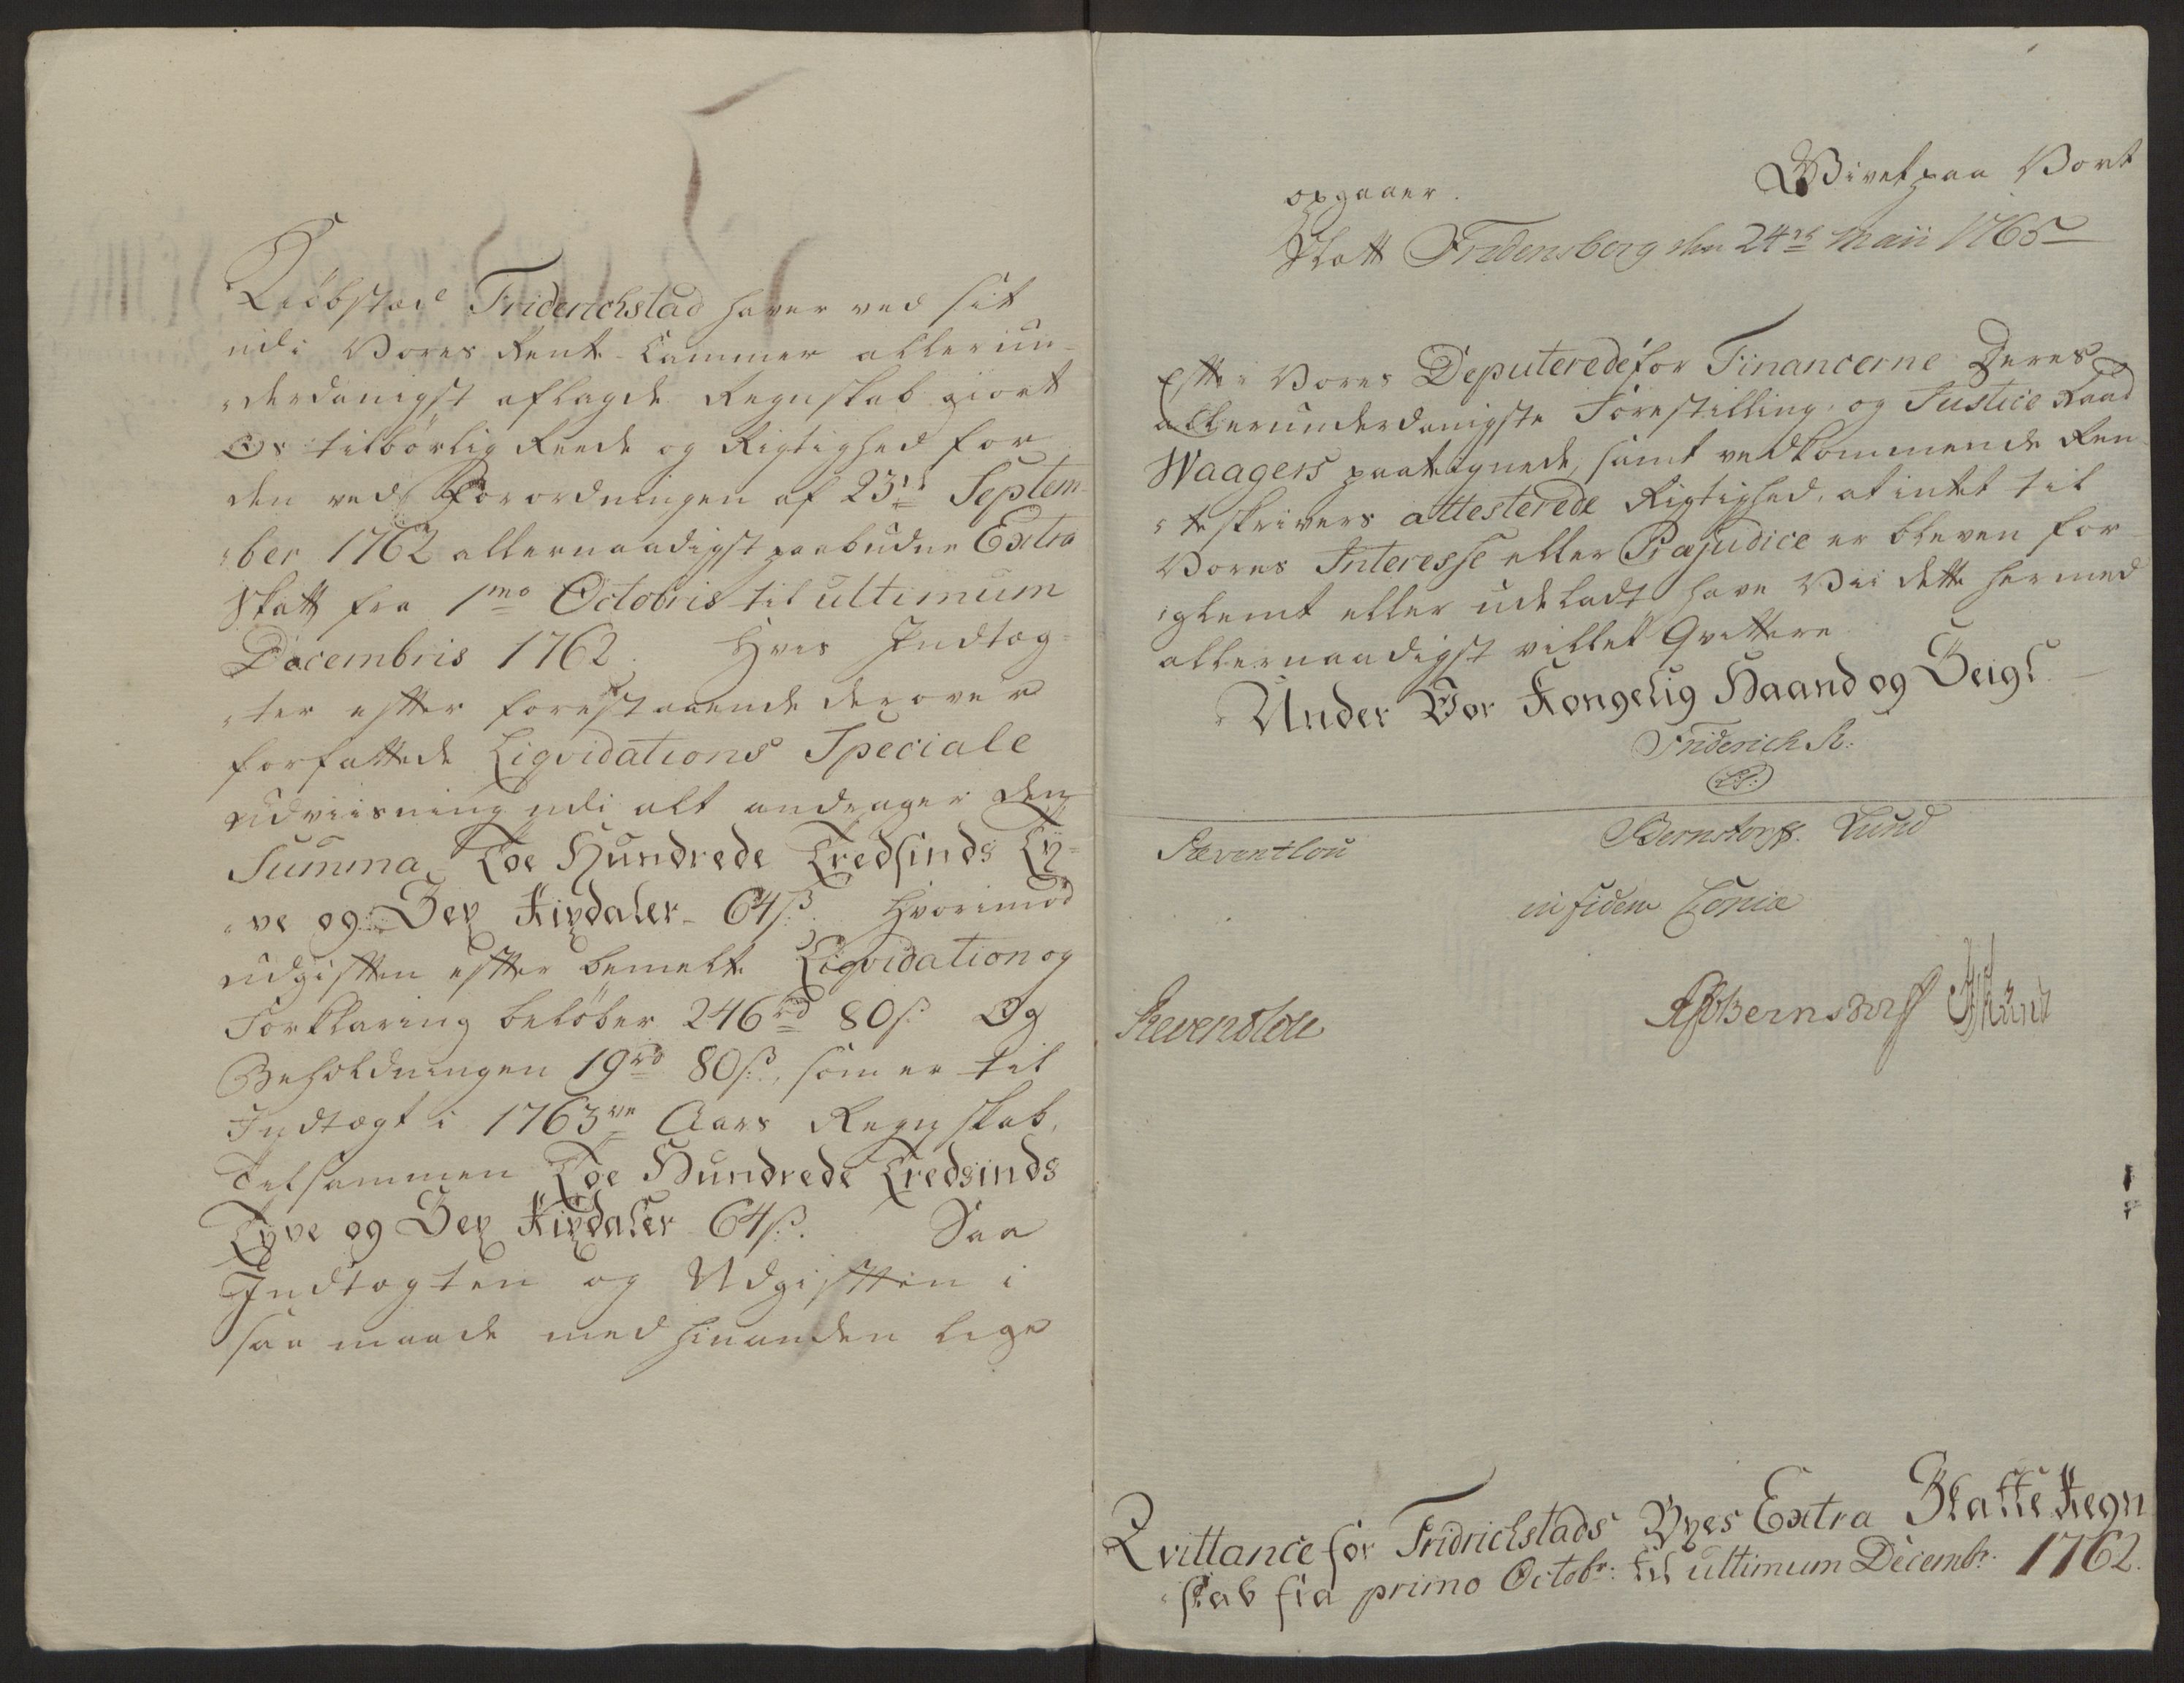 Kiöbstæd Friderichstad haver ved sit
udi Vores Rente-Cammer allerun-
derdanigst aflagde Regnskab giort
Os tilbörlig Reede og Rigtighed for
den ved Forordningen af 23de Septem-
ber 1762 allernaadigst paabudne Extra
Skatt fra 1mo Octobris til ultimum
Decembris 1762. Hvis Indtæg-
ter efter forestaaende derover
forfattede Liqvidations Speciale
udviisning udi alt andrager den
Summa Toe Hundrede Tredsinds Ty-
ve og Sex Rixdaler 64 ß. Hvorimod
udgiften efter bemelte Liqvidation og
Forklaring belöber 246 rd 80 ß. Og
Beholdningen 19 rd 80 ß., som er til
Indtægt i 1763ve Aars Regnskab,
Tilsammen Toe Hundrede Tredsinds
Tyve og Sex Rixdaler 64 ß. Saa
Indtægten og Udgiften i
saa maade med hinanden lige
opgaaer. Givet paa Vort
Slott Fredensborg den 24de Maii 1765
Efter Vores Deputerede for Financerne Deres
allerunderdanigste Forestilling, og Justice Raad
Waagers paategnede, samt vedkommende Ren-
te skrivers attesterede Rigtighed, at intet til
Vores Interesse eller Præjudice er bleven for-
glemt eller udeladt have Vii dette hermed
allernaadigst villet Qvittere
Under Vor Kongelig Haand og Seigl.
Friderich R:
L.S.
Reventlou Bernstorff. Lund
in fidem Copiæ
Reventlou Bernstorff Lund
Qvittance for Fridrichstads Byes Extra Skatte Regn
skab fra primo Octobr: til ultimum Decembr. 1762.